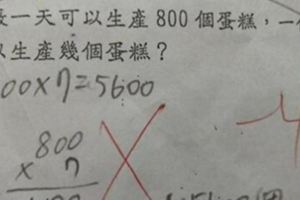 一天可以生產800個蛋糕，一
生產幾個蛋糕？
00×7=5600
800
× 7